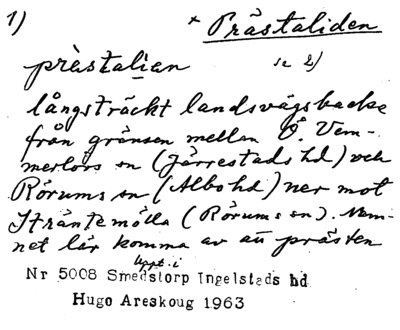 1) × Prästaliden
prästalien se 2)
långsträckt landsvägsbacke
från gränsen mellan Ö. Vem-
merlövs sn (Järrestads hd) och
Rörums sn (Albo hd) ner mot
Sträntemölla (Rörums sn). Nam-
net lär komma av att prästen
Uppt. i
Nr 5008 Smedstorp Ingelstads hd
Hugo Areskoug 1963